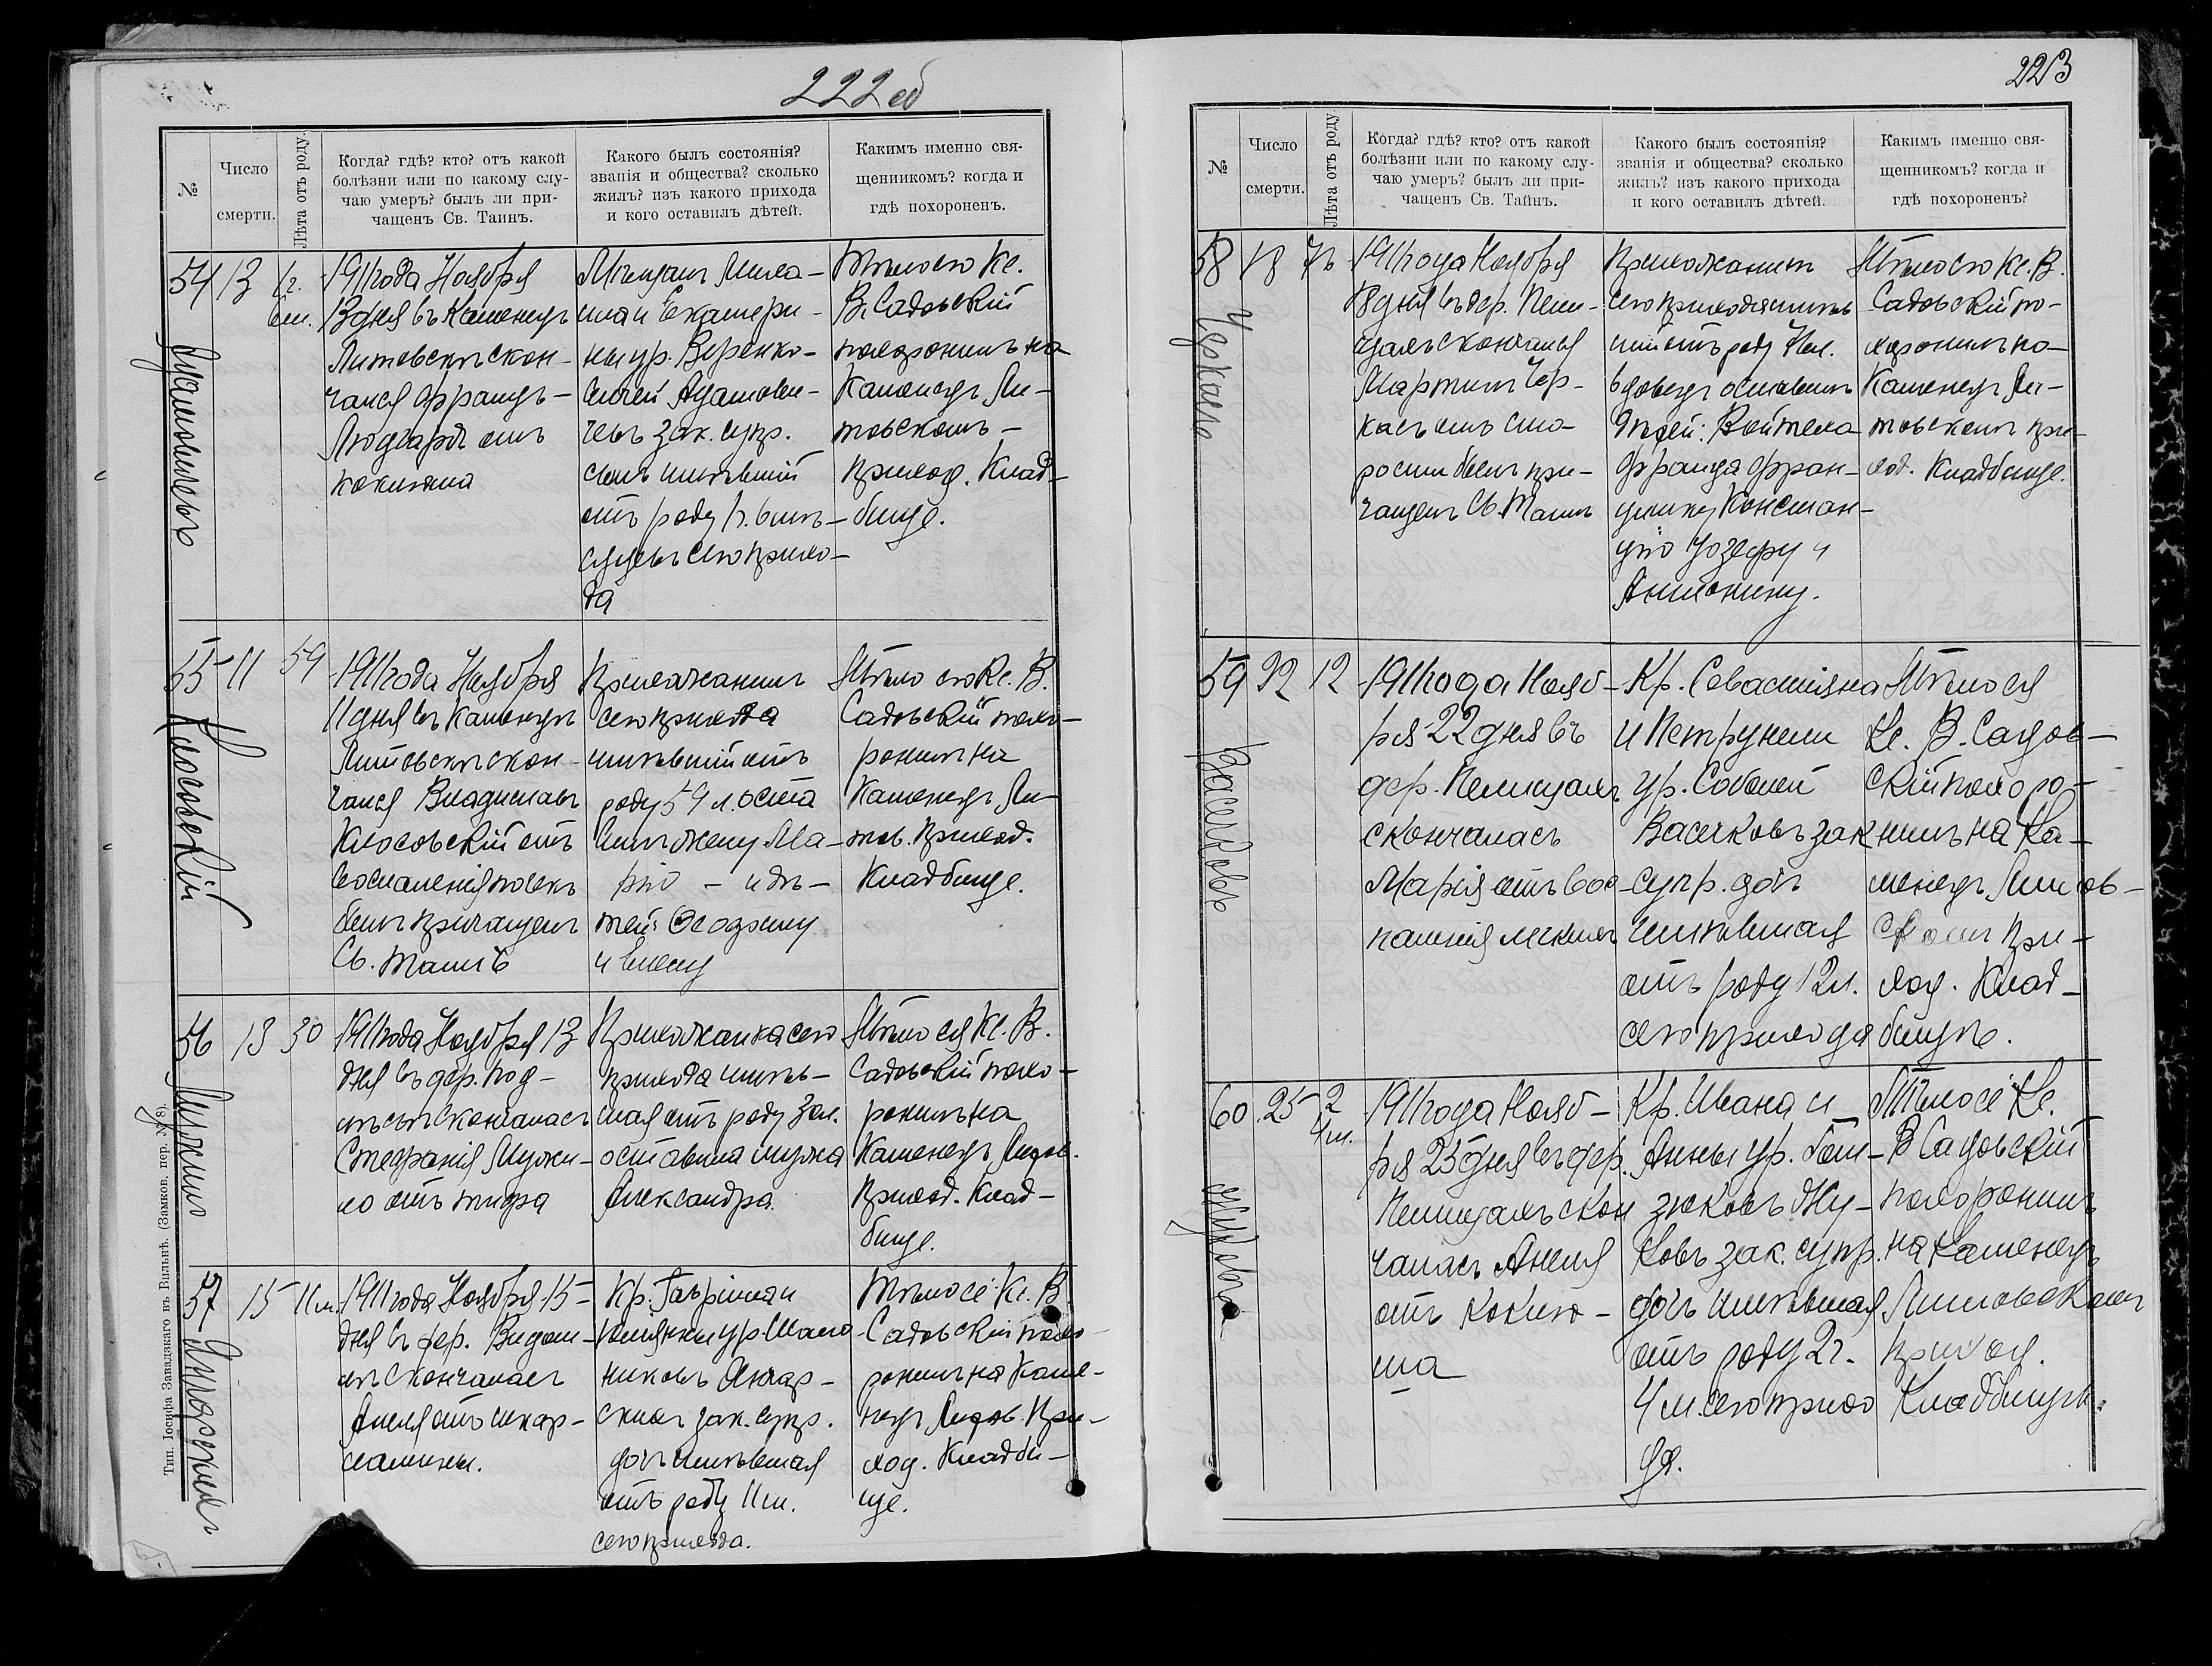 222об
№
Число
смерти.
Лѣта отъ роду.
Когда? гдѣ? кто? отъ какой
болѣзни или по какому слу-
чаю умеръ? былъ ли при-
чащенъ Св. Таинъ.
Какого былъ состоянія?
званія и общества? сколько
жилъ? изъ какого прихода
и кого оставилъ дѣтей.
Какимъ именно свя-
щенникомъ? когда и
гдѣ похороненъ.
54
13
1г.
6м.
1911 года Ноября
13 дня въ Каменцѣ
Литовскѣ скон-
чался Францъ
Людгардъ отъ
коклюша
Мѣщанъ Миха-
ила и Екатери-
ны ур.
Адамови-
чевъ зак. супр.
сынъ жившій
отъ роду 1г. 6 мѣ-
сяцевъ сего прихо-
да
Тѣло его Кс.
В. Садовскій
похоронилъ на
Каменецъ Ли-
товскомъ
приход. Клад-
бище.
55
11
59
Клосовскій
1911 года Ноября
11 дня въ Каменцѣ
Литовскѣ скон-
чался Владиславъ
Клосовскій отъ
воспаленія почекъ
былъ причащенъ
Св. Таинъ
Прихожанинъ
сего прихода
жившій отъ
роду 59 л. оста
вилъ жену Ма-
рію - и дѣ-
тей:
и
Тѣло его Кс. В.
Садовскій похо-
ронилъ на
Каменецъ Ли-
тов. Приход.
Кладбище.
56
13
30
1911 года Ноября 13
дня въ дер.
скончалась
Стефанія Мужи-
ло отъ тифа
Прихожанка сего
прихода жив-
шая отъ роду 30 л.
оставила мужа
Александра.
Тѣло ея Кс. В.
Садовскій похо-
ронилъ на
Каменецъ Литов.
Приход. Клад-
бище.
57
15
11м.
1911 года Ноября 15
дня въ дер. Видом-
лѣ скончалась
Анеля отъ скар-
латины.
Кр. Гавріила и
ур. Шапо-
никовъ
зак. супр.
дочь жившая
отъ роду 11 м.
сего прихода.
Тѣло её Кс. В
Садовскій похо-
ронилъ на Каме-
нецъ Литов. При-
ход. Кладби-
ще.
Тип. Іосифа Завадзкаго въ Вильнѣ. (Замков. пер. № 8).
223
№
Число
смерти.
Лѣта отъ роду.
Когда? гдѣ? кто? отъ какой
болѣзни или по какому слу-
чаю умеръ? былъ ли при-
чащенъ Св. Тайнъ.
Какого былъ состоянія?
званія и общества? сколько
жилъ? изъ какого прихода
и кого оставилъ дѣтей.
Какимъ именно свя-
щенникомъ? когда и
гдѣ похороненъ?
58
18
Черкасъ
1911 года Ноября
18 дня въ дер. Пели-
щахъ скончался
Мартинъ Чер-
касъ отъ ста-
рости былъ при-
чащенъ Св. Таинъ
Прихожанинъ
сего прихода жив
шій отъ роду
вдовецъ оставилъ
дѣтей: Войтеха
Франца Фран-
цишку Констан-
цію Іозефу и
Антонину.
Тѣло его Кс. В.
Садовскій по-
хоронилъ на
Каменецъ Ли-
товскомъ при-
ход. Кладбище.
59
22
12
Васечковъ
1911 года Нояб-
ря 22 дня въ
дер. Пелищахъ
скончалась
Марія отъ вос-
паленія легкихъ
Кр. Севастіяна
и Петрунели
ур. Соболей
Васечковъ зак
супр. дочь
жившая
отъ роду 12 л.
сего прихода
Тѣло ея
Кс. В. Садов-
скій похоро-
нилъ на Ка-
менецъ Литов-
скомъ При-
ход. Клад-
бищѣ.
60
25
2
4м.
Жуковъ
1911 года Нояб-
ря 25 дня въ дер.
Пелищахъ скон
чалась Анеля
отъ коклю-
ша
Кр. Ивана и
Анны ур.
Жу-
ковъ зак. супр.
дочь жившая
отъ роду 2 г.
4 м. сего прихо
да.
Тѣло её Кс.
В Садовскій
похоронилъ
на Каменецъ
Литовскомъ
приход.
Кладбищѣ.